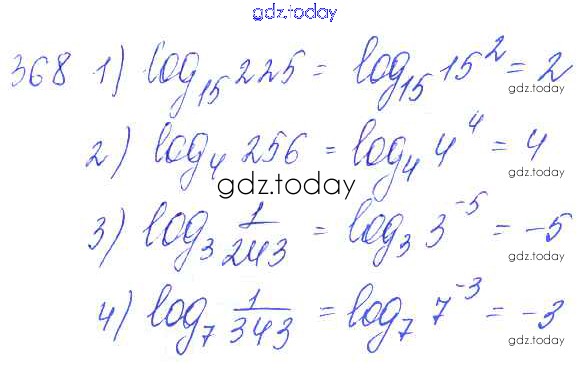 gdz.today
368 1) log₁₅ 225 = log₁₅ 15² = 2
gdz.today
2) log₄ 256 = log₄ 4⁴ = 4
gdz.today
gdz.today
3) log₃ 1/243 = log₃ 3⁻⁵ = -5
gdz.today
4) log₇ 1/343 = log₇ 7⁻³ = -3
gdz.today